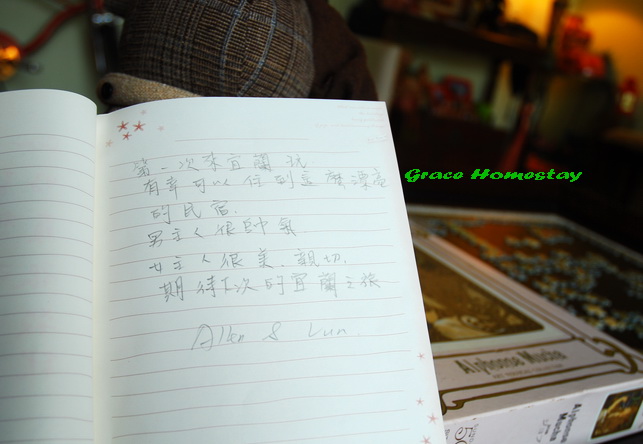 第一次來宜蘭玩
有幸可以住到這麼漂亮
的民宿.
男主人很帥氣
女主人很美.親切.
期待下次的宜蘭之旅
Allen & Lun.
Grace Homestay
Alphonse Mucha
Alphonse
Mucha